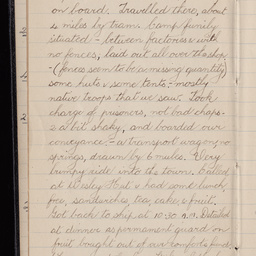 on board. Travelled there, about
4 miles by tram. Camp funnily
situated - between factories & with
no fences, laid out all over the shop
- (fences seem to be a missing quantity)
some huts & some tents - mostly
native troops that we saw. Took
charge of prisoners, not bad chaps -
a bit shaky, and boarded our
conveyance - a transport wagon, no
springs, drawn by 6 mules. Very
bumpy ride into the town. Called
at Wesley Hut & had some lunch,
free, sandwiches, tea, cake & fruit.
Got back to ship at 10.30 Detailed
at dinner as permanent guard on
fruit bought out of our comforts fund